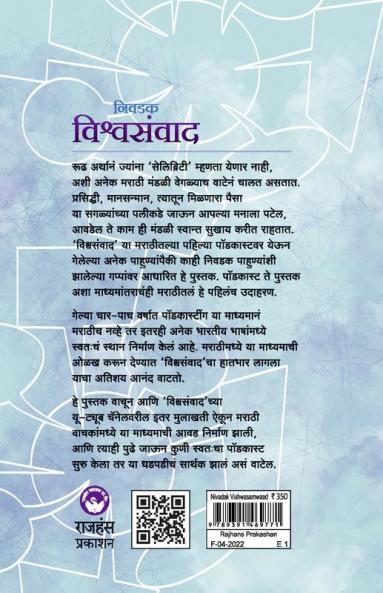 निवडक
विश्वसंवाद
रूढ अर्थानं ज्यांना ‘सेलिब्रिटी’ म्हणता येणार नाही,
अशी अनेक मराठी मंडळी वेगळ्याच वाटेनं चालत असतात.
प्रसिद्धी, मानसन्मान, त्यातून मिळणारा पैसा
या सगळ्यांच्या पलीकडे जाऊन आपल्या मनाला पटेल,
आवडेल ते काम ही मंडळी स्वान्त सुखाय करीत राहतात.
‘विश्वसंवाद’ या मराठीतल्या पहिल्या पॉडकास्टवर येऊन
गेलेल्या अनेक पाहुण्यांपैकी काही निवडक पाहुण्यांशी
झालेल्या गप्पांवर आधारित हे पुस्तक. पॉडकास्ट ते पुस्तक
अशा माध्यमांतराचंही मराठीतलं हे पहिलंच उदाहरण.
गेल्या चार-पाच वर्षांत पॉडकास्टींग या माध्यमानं
मराठीच नव्हे तर इतरही अनेक भारतीय भाषांमध्ये
स्वतःचं स्थान निर्माण केलं आहे. मराठीमध्ये या माध्यमाची
ओळख करून देण्यात ‘विश्वसंवाद’चा हातभार लागला
याचा अतिशय आनंद वाटतो.
हे पुस्तक वाचून आणि ‘विश्वसंवाद’च्या
यू-ट्यूब चॅनेलवरील इतर मुलाखती ऐकून मराठी
वाचकांमध्ये या माध्यमाची आवड निर्माण झाली,
आणि त्याही पुढे जाऊन कुणी स्वतःचा पॉडकास्ट
सुरु केला तर या धडपडीचं सार्थक झालं असं वाटेल.
राजहंस
प्रकाशन
Nivadak Vishwasamwaad ₹ 350
9 789391 469771
Rajhans Prakashan
F-04-2022 E 1